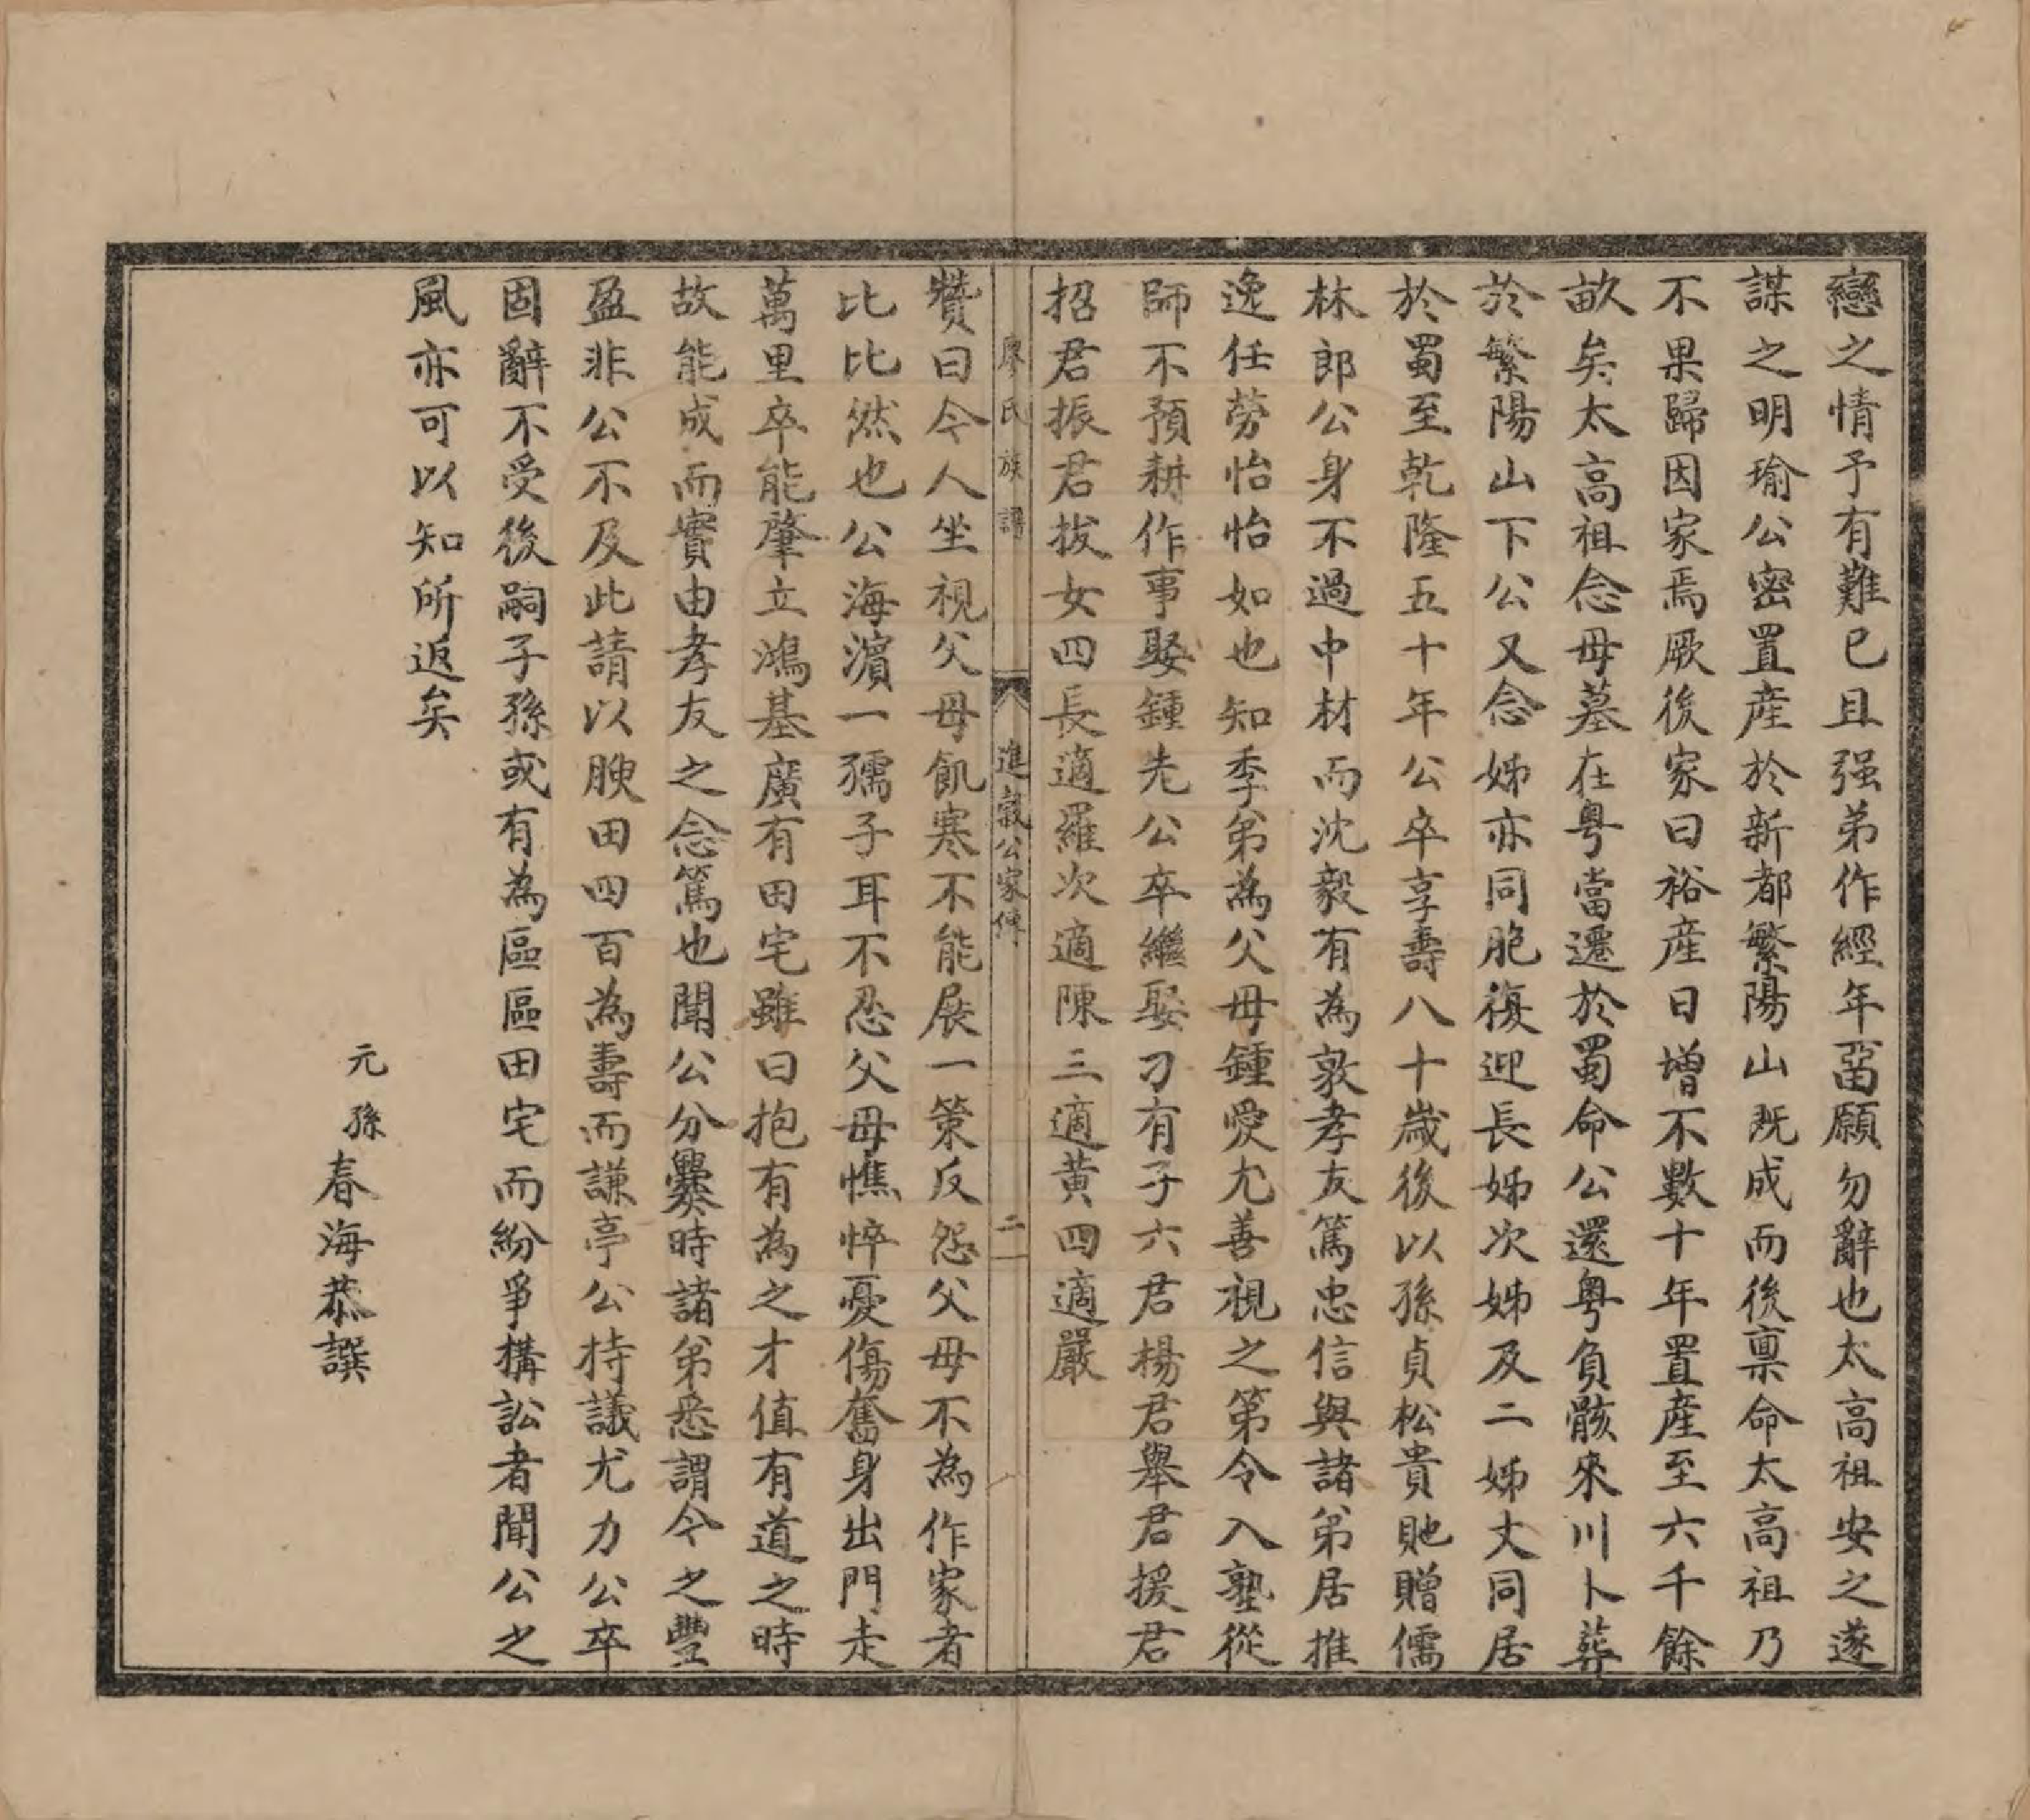 戀之情予有難已且强弟作經年畱願勿辭也太高祖安之遂
謀之明瑜公密置産於新都繁陽山既成而後禀命太高祖乃
不果歸因家焉厥後家曰裕産日增不數十年置産至六千餘
畝矣太高祖念母墓在粤當遷於蜀命公還粤負骸來川卜葬
於繁陽山下公又念姊亦同胞復迎長姊次姊及二姊丈同居
於蜀至乾隆五十年公卒享壽八十歲後以孫貞松貴貤贈儒
林郎公身不過中材而沈毅有為敦孝友篤忠信與諸弟居推
逸任勞怡怡如也知季弟為父母鍾愛尤善視之第令入塾從
師不預耕作事娶鍾先公卒繼娶刁有子六君楊君舉君援君
招君振君拔女四長適羅次適陳三適黄四適嚴
廖氏族譜
進嵗公家傳
二
贊曰今人坐視父母飢寒不能展一策反怨父母不為作家者
比比然也公海濵一孺子耳不忍父母憔悴憂傷奮身出門走
萬里卒能肇立鴻基廣有田宅雖曰抱有為之才值有道之時
故能成而實由孝友之念篤也聞公分爨時諸弟悉謂今之豐
盈非公不及此請以腴田四百為壽而謙亭公持議尤力公卒
固辭不受後嗣子孫或有為區區田宅而紛爭搆訟者聞公之
風亦可以知所返矣
元孫春海恭譔